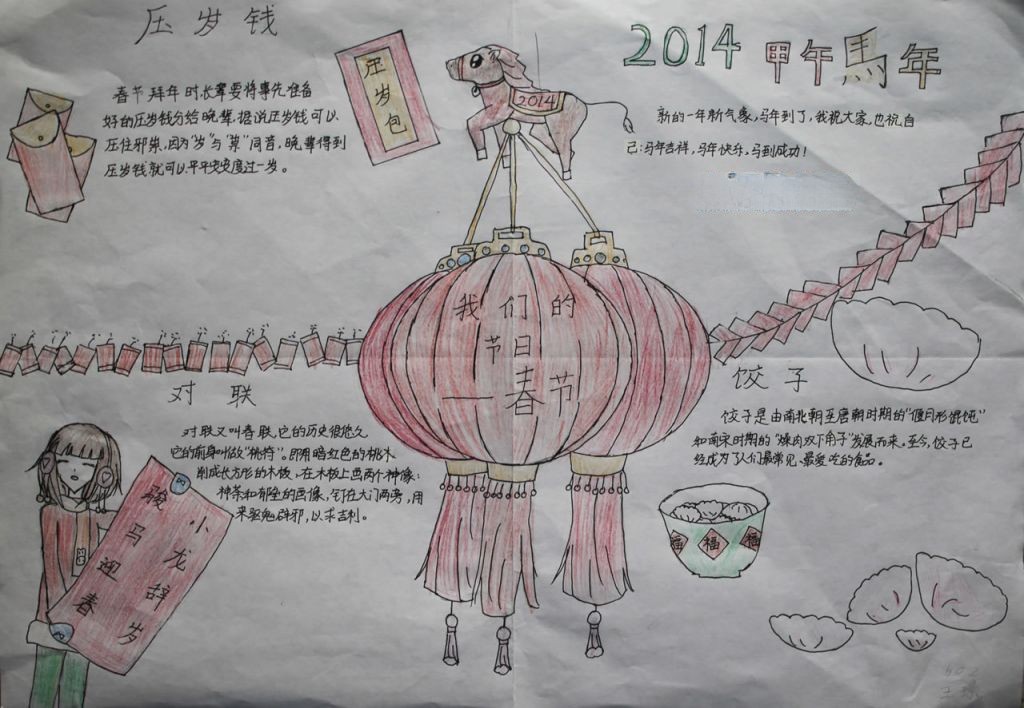 压岁钱
春节拜年时长辈要将事先准备
好的压岁钱分给晚辈,据说压岁钱可以
压住邪祟,因为"岁"与"祟"同音,晚辈得到
压岁钱就可以平平安安度过一岁。
压岁包
2014
2014 甲午馬年
新的一年新气象,马年到了,我祝大家,也祝自
己:马年吉祥,马年快乐,马到成功!
我们的
节日
—春节
对联
对联又叫春联,它的历史很悠久
它的前身叫做"桃符"。即用暗红色的桃木
削成长方形的木板,在木板上画两个神像:
神荼和郁垒的画像,钉在大门两旁,用
来驱鬼辟邪,以求吉利。
小龙辞岁
骏马迎春
饺子
饺子是由南北朝至唐朝时期的"偃月形馄饨"
和南宋时期的"燥肉双下角子"发展而来,至今,饺子已
经成为了人们最常见、最爱吃的食品。
福 福 福
602